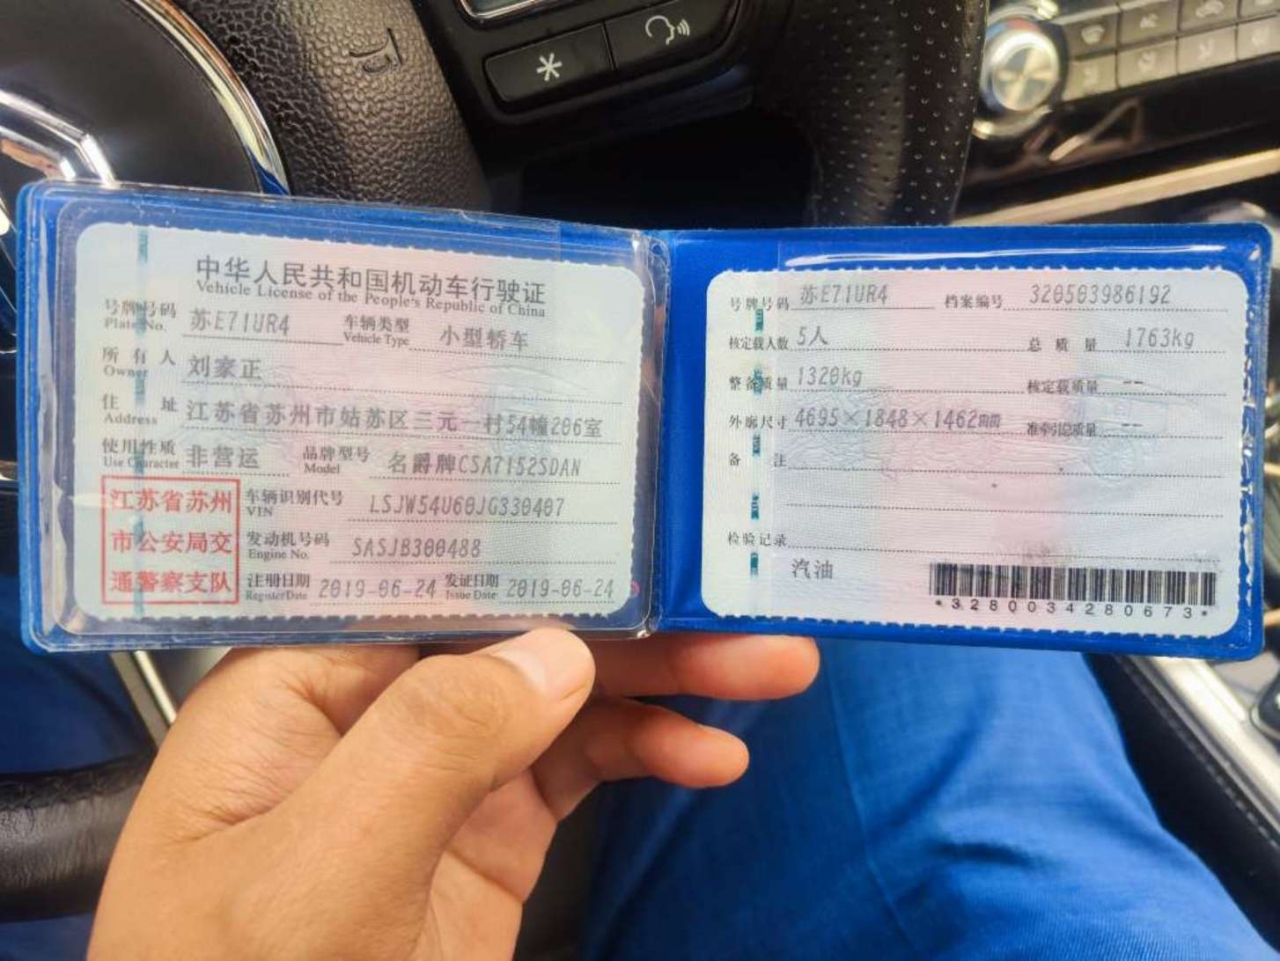 中华人民共和国机动车行驶证
Vehicle License of the People's Republic of China
号牌号码 苏E71UR4 车辆类型 小型轿车
Plate No. Vehicle Type
所有人 刘家正
Owner
住址 江苏省苏州市姑苏区三元一村54幢206室
Address
使用性质 非营运 品牌型号 名爵牌CSA7152SDAN
Use Character Model
江苏省苏州
市公安局交
通警察支队
车辆识别代号 LSJW54U60JG330407
VIN
发动机号码 SASJB300488
Engine No.
注册日期 2019-06-24 发证日期 2019-06-24
Register Date Issue Date
号牌号码 苏E71UR4 档案编号 320503986192
核定载人数 5人 总质量 1763kg
整备质量 1320kg 核定载质量 --
外廓尺寸 4695×1848×1462mm 准牵引总质量 --
备注
检验记录
汽油
*3280034280673*